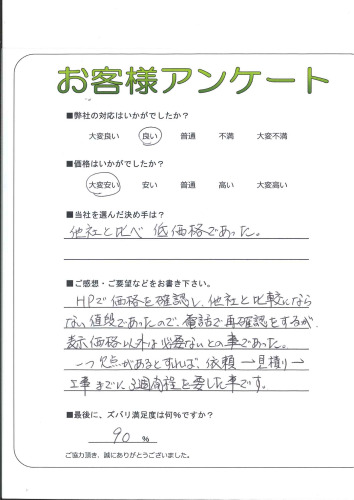 お客様アンケート
■弊社の対応はいかがでしたか？
大変良い 良い 普通 不満 大変不満
■価格はいかがでしたか？
大変安い 安い 普通 高い 大変高い
■当社を選んだ決め手は？
他社と比べ 低価格であった。
■ご感想・ご要望などをお書き下さい。
HPで価格を確認し、他社と比較になら
ない値段であったので、電話で再確認をするが、
表示価格以外は必要ないとの事であった。
一つ欠点があるとすれば、依頼→見積り→
工事までに3週間程を要した事です。
■最後に、ズバリ満足度は何%ですか？
90 %
ご協力頂き、誠にありがとうございました。